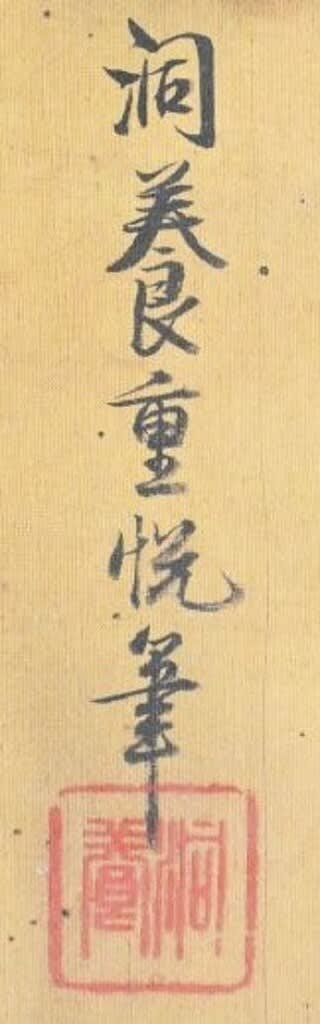 洞養重悦筆
洞養